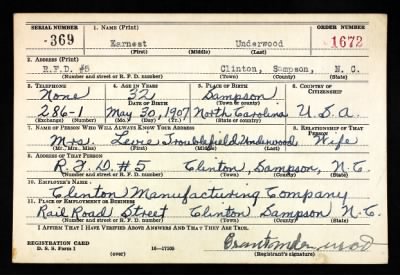 SERIAL NUMBER 1. NAME (Print) ORDER NUMBER
-369 Earnest Underwood 1672
(First) (Middle) (Last)
2. ADDRESS (Print)
R.F.D. #5 Clinton, Sampson, N. C.
(Number and street or R. F. D. number) (Town) (County) (State)
3. TELEPHONE 4. AGE IN YEARS 5. PLACE OF BIRTH 6. COUNTRY OF CITIZENSHIP
None 32 Sampson
DATE OF BIRTH (Town or county)
286-1 May 30, 1907 North Carolina U.S.A.
(Exchange) (Number) (Mo.) (Day) (Yr.) (State or country)
7. NAME OF PERSON WHO WILL ALWAYS KNOW YOUR ADDRESS 8. RELATIONSHIP OF THAT PERSON
Mrs. Troublefield Underwood Wife
(Mr., Mrs., Miss) (First) (Middle) (Last)
9. ADDRESS OF THAT PERSON
R.F.D. #5 Clinton, Sampson, N.C.
(Number and street or R. F. D. number) (Town) (County) (State)
10. EMPLOYER'S NAME
Clinton Manufacturing Company
11. PLACE OF EMPLOYMENT OR BUSINESS
Rail Road Street Clinton Sampson N.C.
(Number and street or R. F. D. number) (Town) (County) (State)
I AFFIRM THAT I HAVE VERIFIED ABOVE ANSWERS AND THAT THEY ARE TRUE.
REGISTRATION CARD
D. S. S. Form 1 (over) (Registrant's signature)